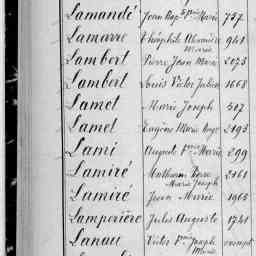 Lamandé Jean Bap. Fçois Marie 737
Lamarre Théophile Alexandre Marie 941
Lambert Pierre Jean Marie 2073
Lambert Louis Victor Julien 1668
Lamet Marie Joseph 507
Lamet Eugène Marie Ange 2193
Lami Auguste Fçois Marie 299
Lamiré Mathurin Pierre Marie Joseph 2161
Lamiré Jean Marie 1965
Lamperière Jules Auguste 1741
Lanau Victor Fçois Joseph Marie exempt